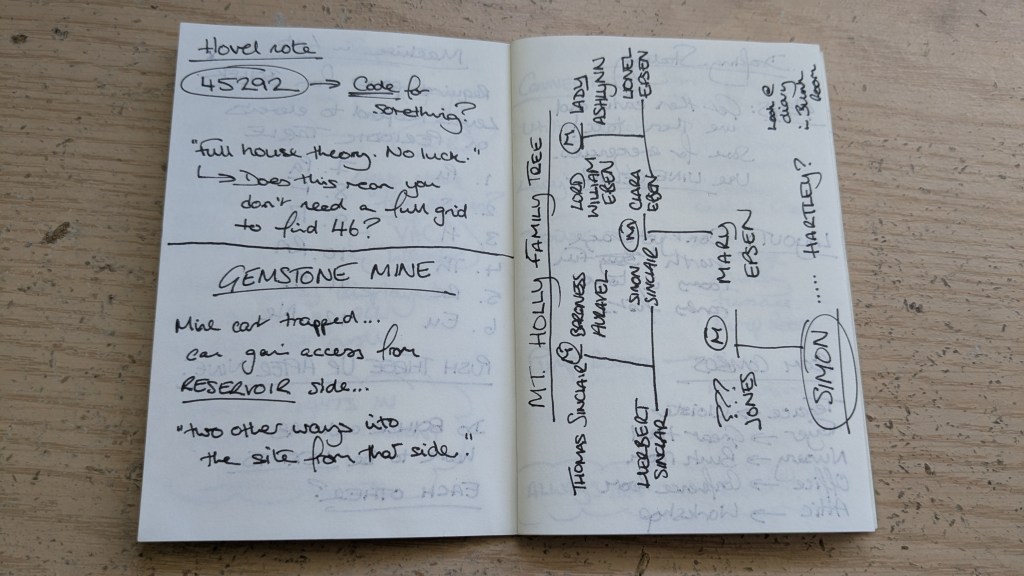 Hovel note
45292 → Code for
something?
"Full house theory. No luck."
↳ Does this mean you
don't need a full grid
to find 46?
GEMSTONE MINE
Mine cart trapped...
can gain access from
RESERVOIR side...
"two other ways into
the site from that side."
MT. HOLLY FAMILY TREE
THOMAS SINCLAIR (M) BARONESS AURAVEI
LORD WILLIAM EPSEN (M) LADY ASHLYNN
HERBERT SINCLAIR
SIMON SINCLAIR (M) CLARA EPSEN
LIONEL EPSEN
??? JONES (M) MARY EPSEN
SIMON ...... HARTLEY?
diary
Room